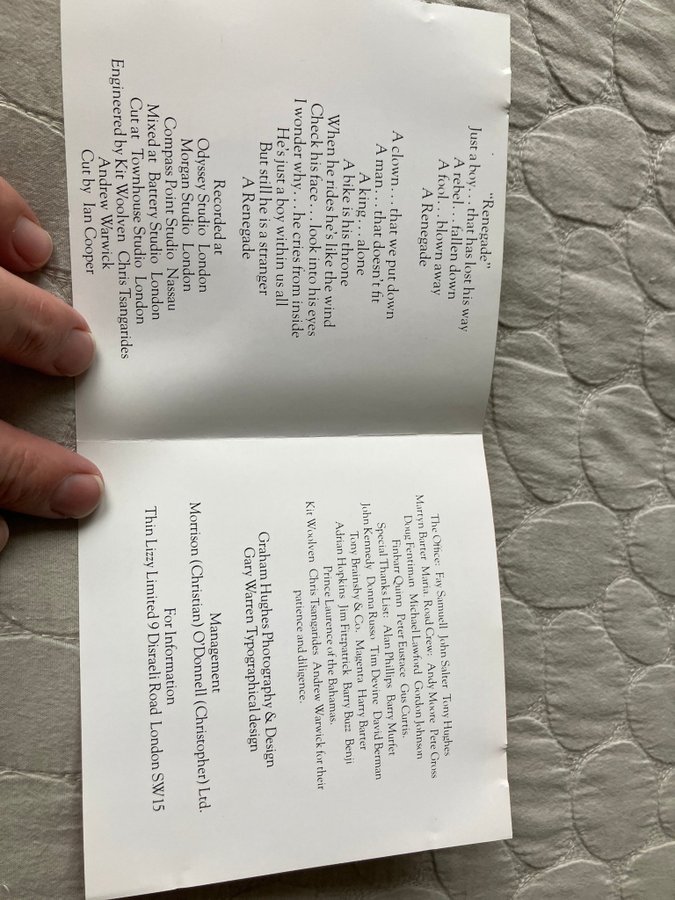 "Renegade"
Just a boy. . . that has lost his way
A rebel. . . fallen down
A fool. . . blown away
A Renegade
A clown. . . that we put down
A man. . . that doesn't fit
A king. . . alone
A bike is his throne
When he rides he's like the wind
Check his face. . . look into his eyes
I wonder why. . . he cries from inside
He's just a boy within us all
But still he is a stranger
A Renegade
Recorded at
Odyssey Studio London
Morgan Studio London
Compass Point Studio Nassau
Mixed at Battery Studio London
Cut at Townhouse Studio London
Engineered by Kit Woolven Chris Tsangarides
Andrew Warwick
Cut by Ian Cooper
The Office: Fay Samuell John Salter Tony Hughes
Martyn Barter Maria. Road Crew: Andy Moore Pete Gross
Doug Fentiman Michael Lawford Gordon Johnson
Finbarr Quinn Peter Eustace Gus Curtis.
Special Thanks List: Alan Phillips Barry Murfet
John Kennedy Donna Russo Tim Devine David Berman
Tony Brainsby & Co. Magenta Harry Barter
Adrian Hopkins Jim Fitzpatrick Barry Buzz Benji
Prince Laurence of the Bahamas.
Kit Woolven Chris Tsangarides Andrew Warwick for their
patience and diligence.
Graham Hughes Photography & Design
Gary Warren Typographical design
Management
Morrison (Christian) O'Donnell (Christopher) Ltd.
For Information
Thin Lizzy Limited 9 Disraeli Road London SW15